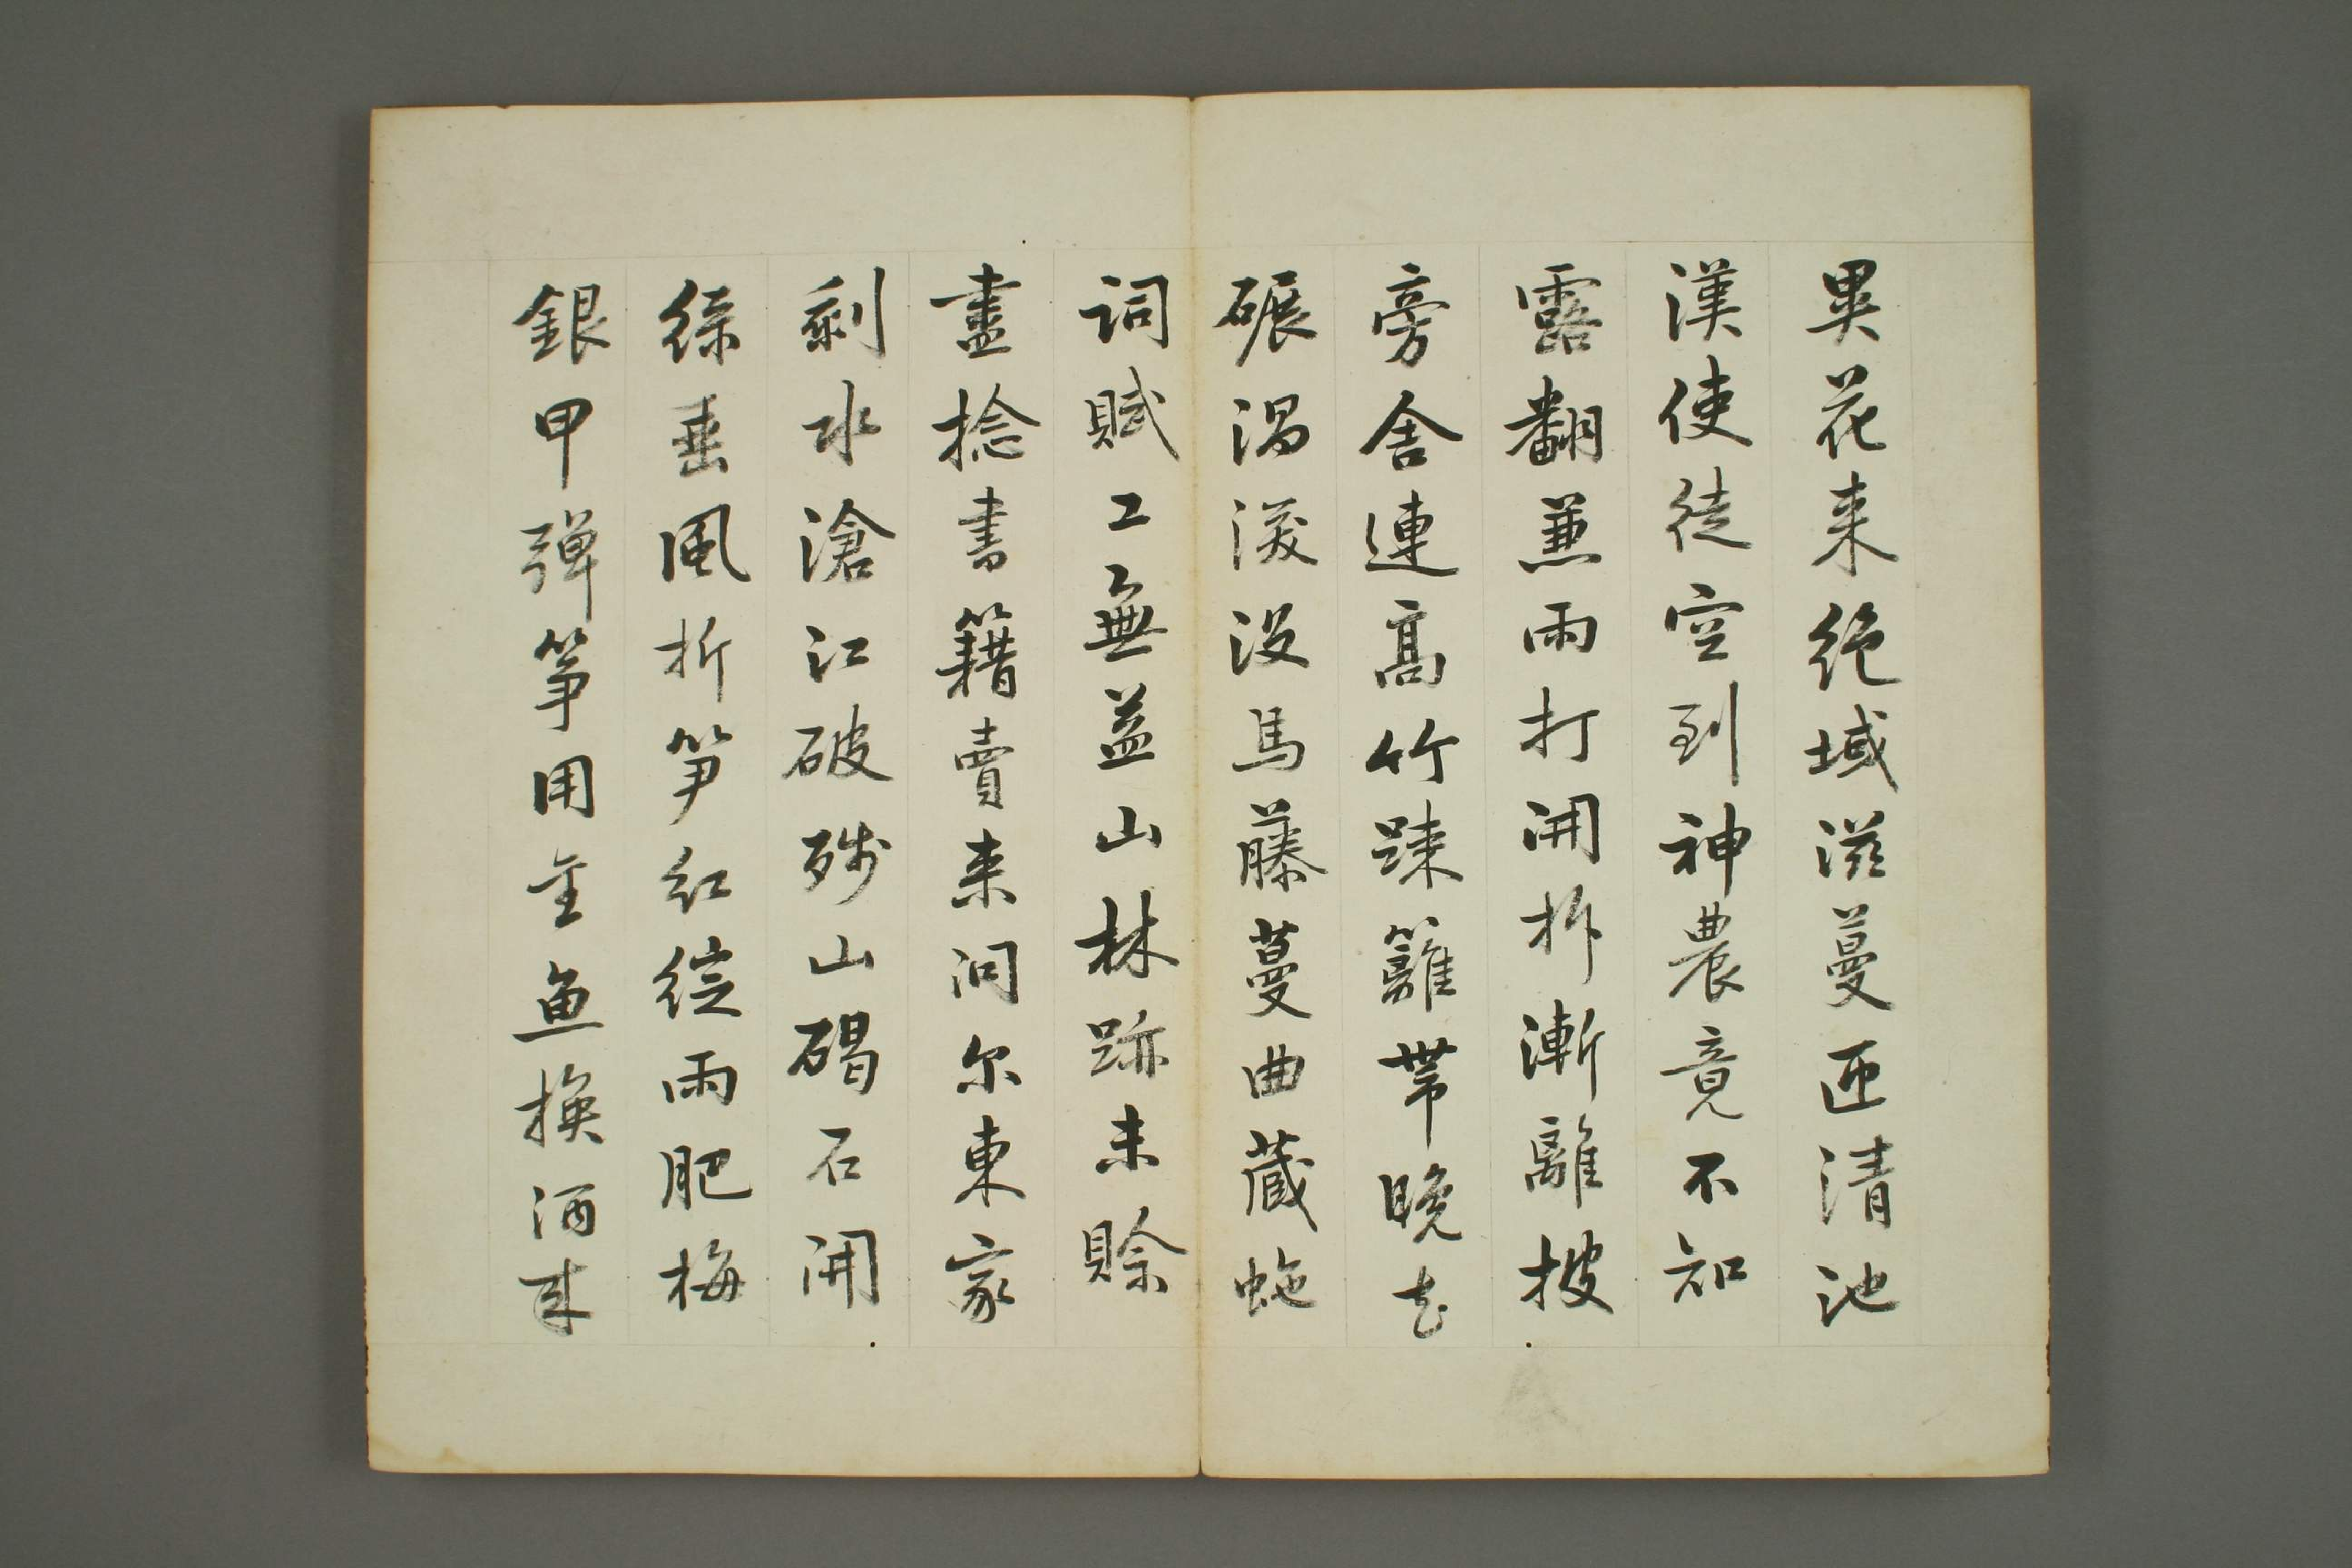 異花来絶域滋蔓匝清池
漢使徒空到神農竟不知
露翻兼雨打開拆漸離披
旁舍連高竹疎籬帶晚花
碾渦深没馬藤蔓曲藏虵
詞賦工無益山林跡未賒
盡捻書籍賣来问尔東家
剩水滄江破殘山碣石開
緑垂風折笋紅綻雨肥梅
銀甲彈筝用金魚換酒来